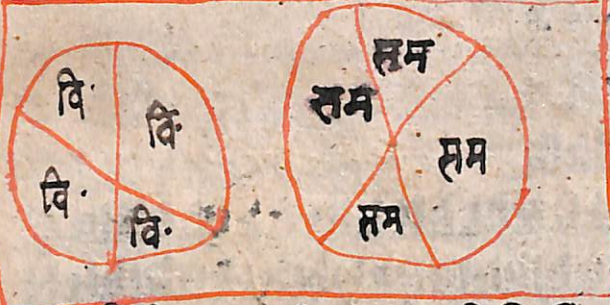 वि·
वि·
वि·
वि·
सम
सम
सम
सम